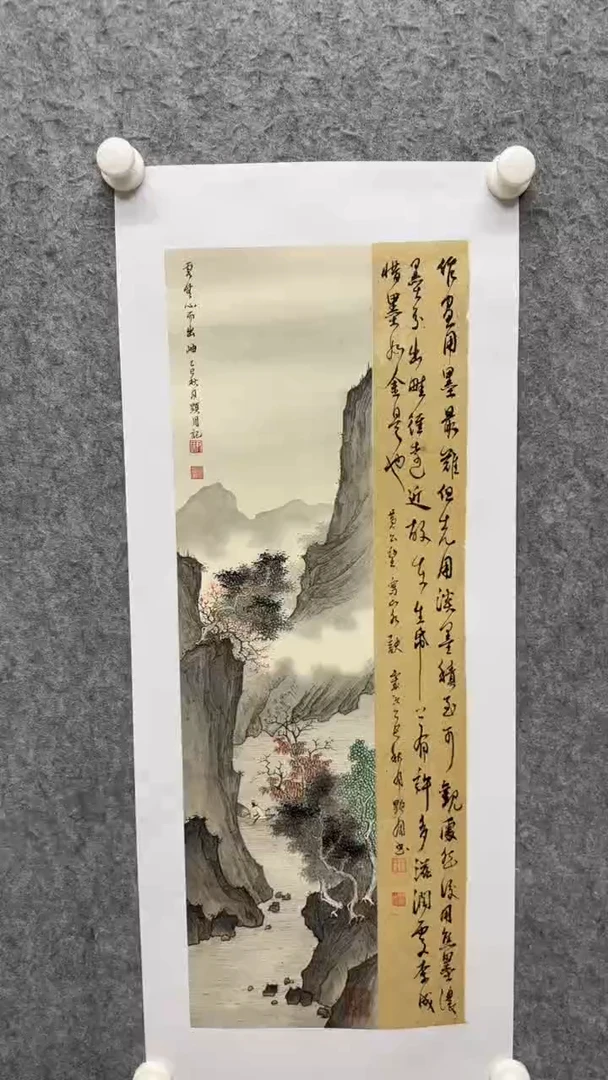 作畫用墨最難但先用淡墨積至可觀處然後用焦墨濃
墨分出畦徑遠近故在生紙上有許多滋潤處李成
惜墨如金是也
黃公望寫山水訣 乙巳秋月 書
雲無心而出岫 乙巳秋月 記